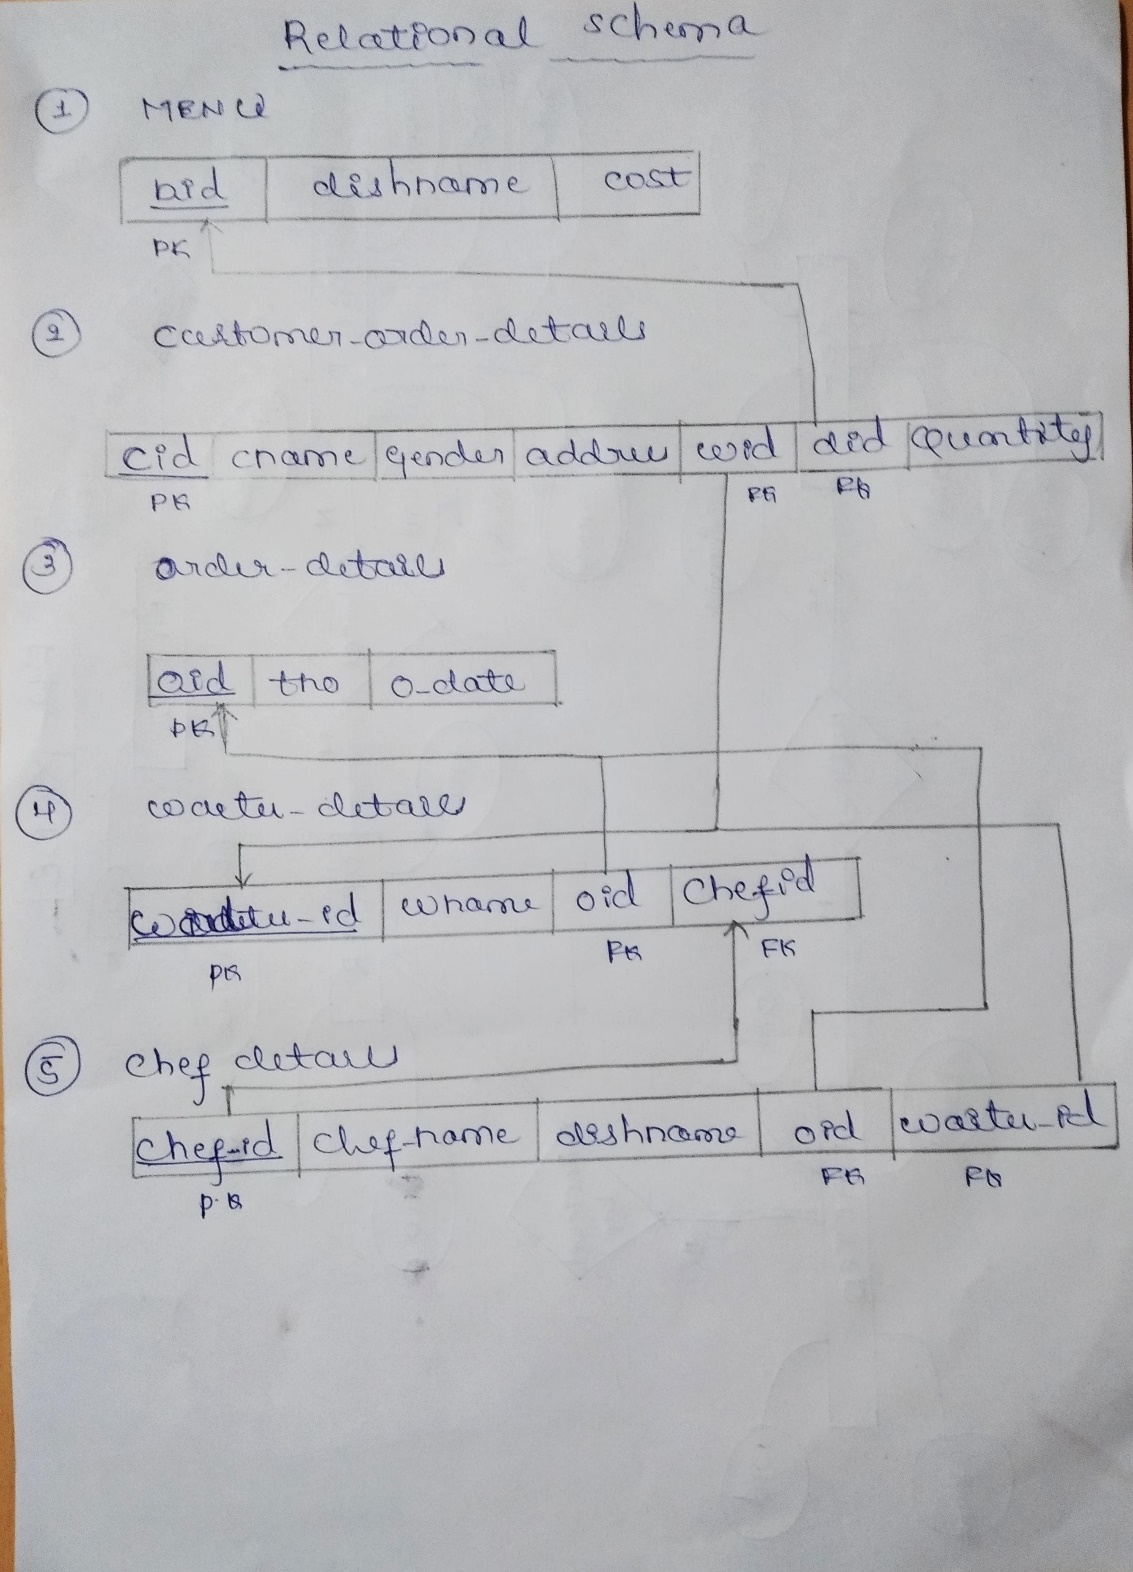 Relational schema
1 MENU
did dishname cost
PK
2 customer-order-details
cid cname gender address wid did Quantity
PK FK FK
3 order-details
oid tno o-date
PK
4 waiter-details
waiter-id wname oid Chefid
PK FK FK
5 chef details
chef-id chef-name dishname oid waiter-id
P.K FK FK